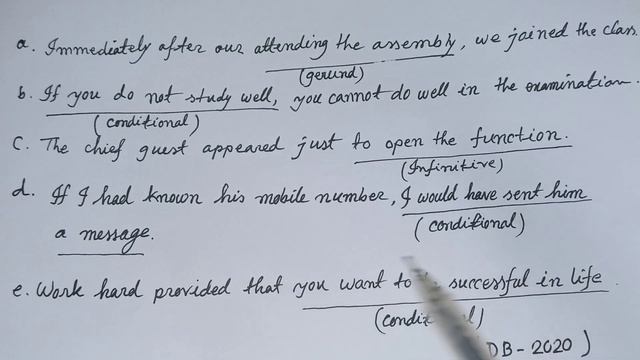 a. Immediately after our attending the assembly, we joined the class.
(gerund)
b. If you do not study well, you cannot do well in the examination.
(conditional)
c. The chief guest appeared just to open the function.
(Infinitive)
d. If I had known his mobile number, I would have sent him
(conditional)
a message.
e. Work hard provided that you want to successful in life.
DB-2020)